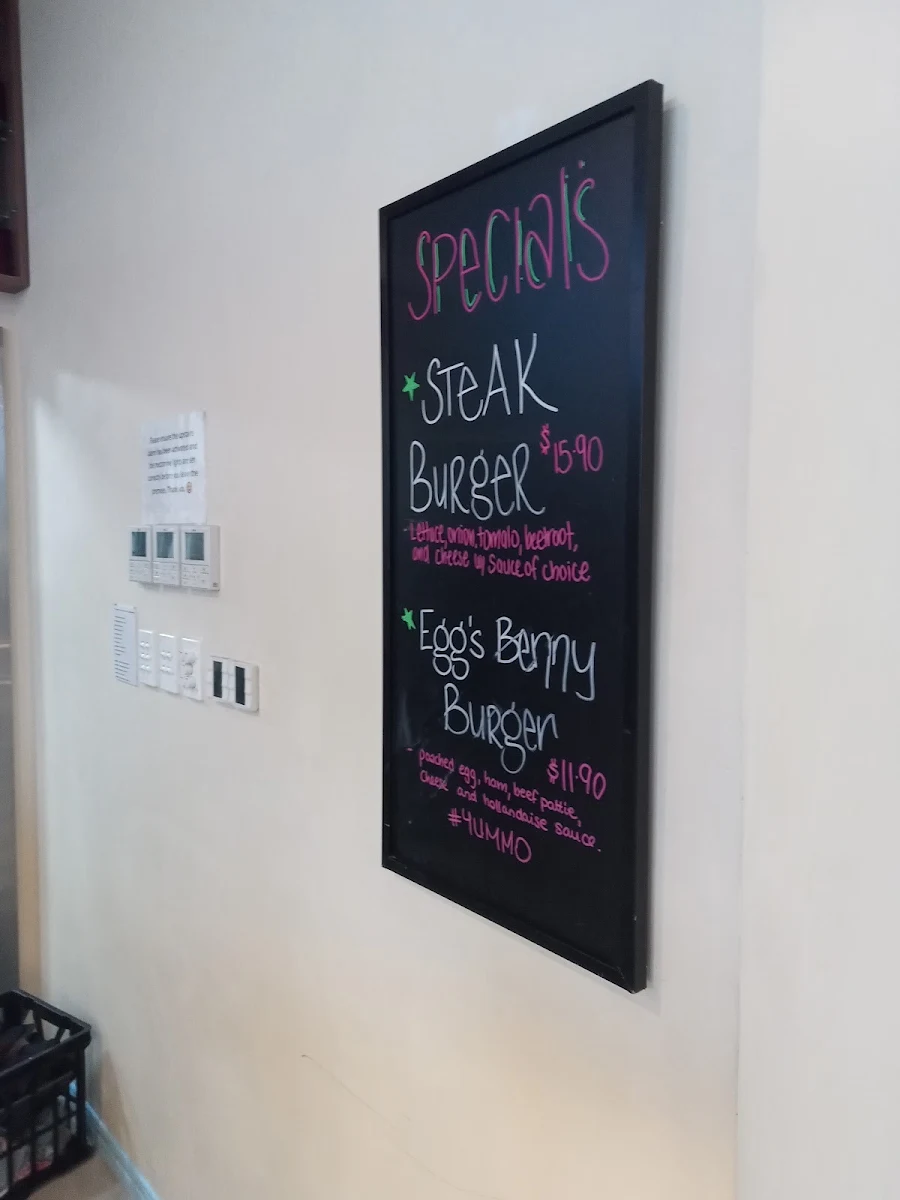 Specials
STeAK
BuRgeR $15.90
- Lettuce, onion, tomato, beetroot,
and cheese w/ Sauce of choice
Egg's Benny
Burger
$11.90
- poached egg, ham, beef pattie,
Cheese and hollandaise sauce.
#YUMMO